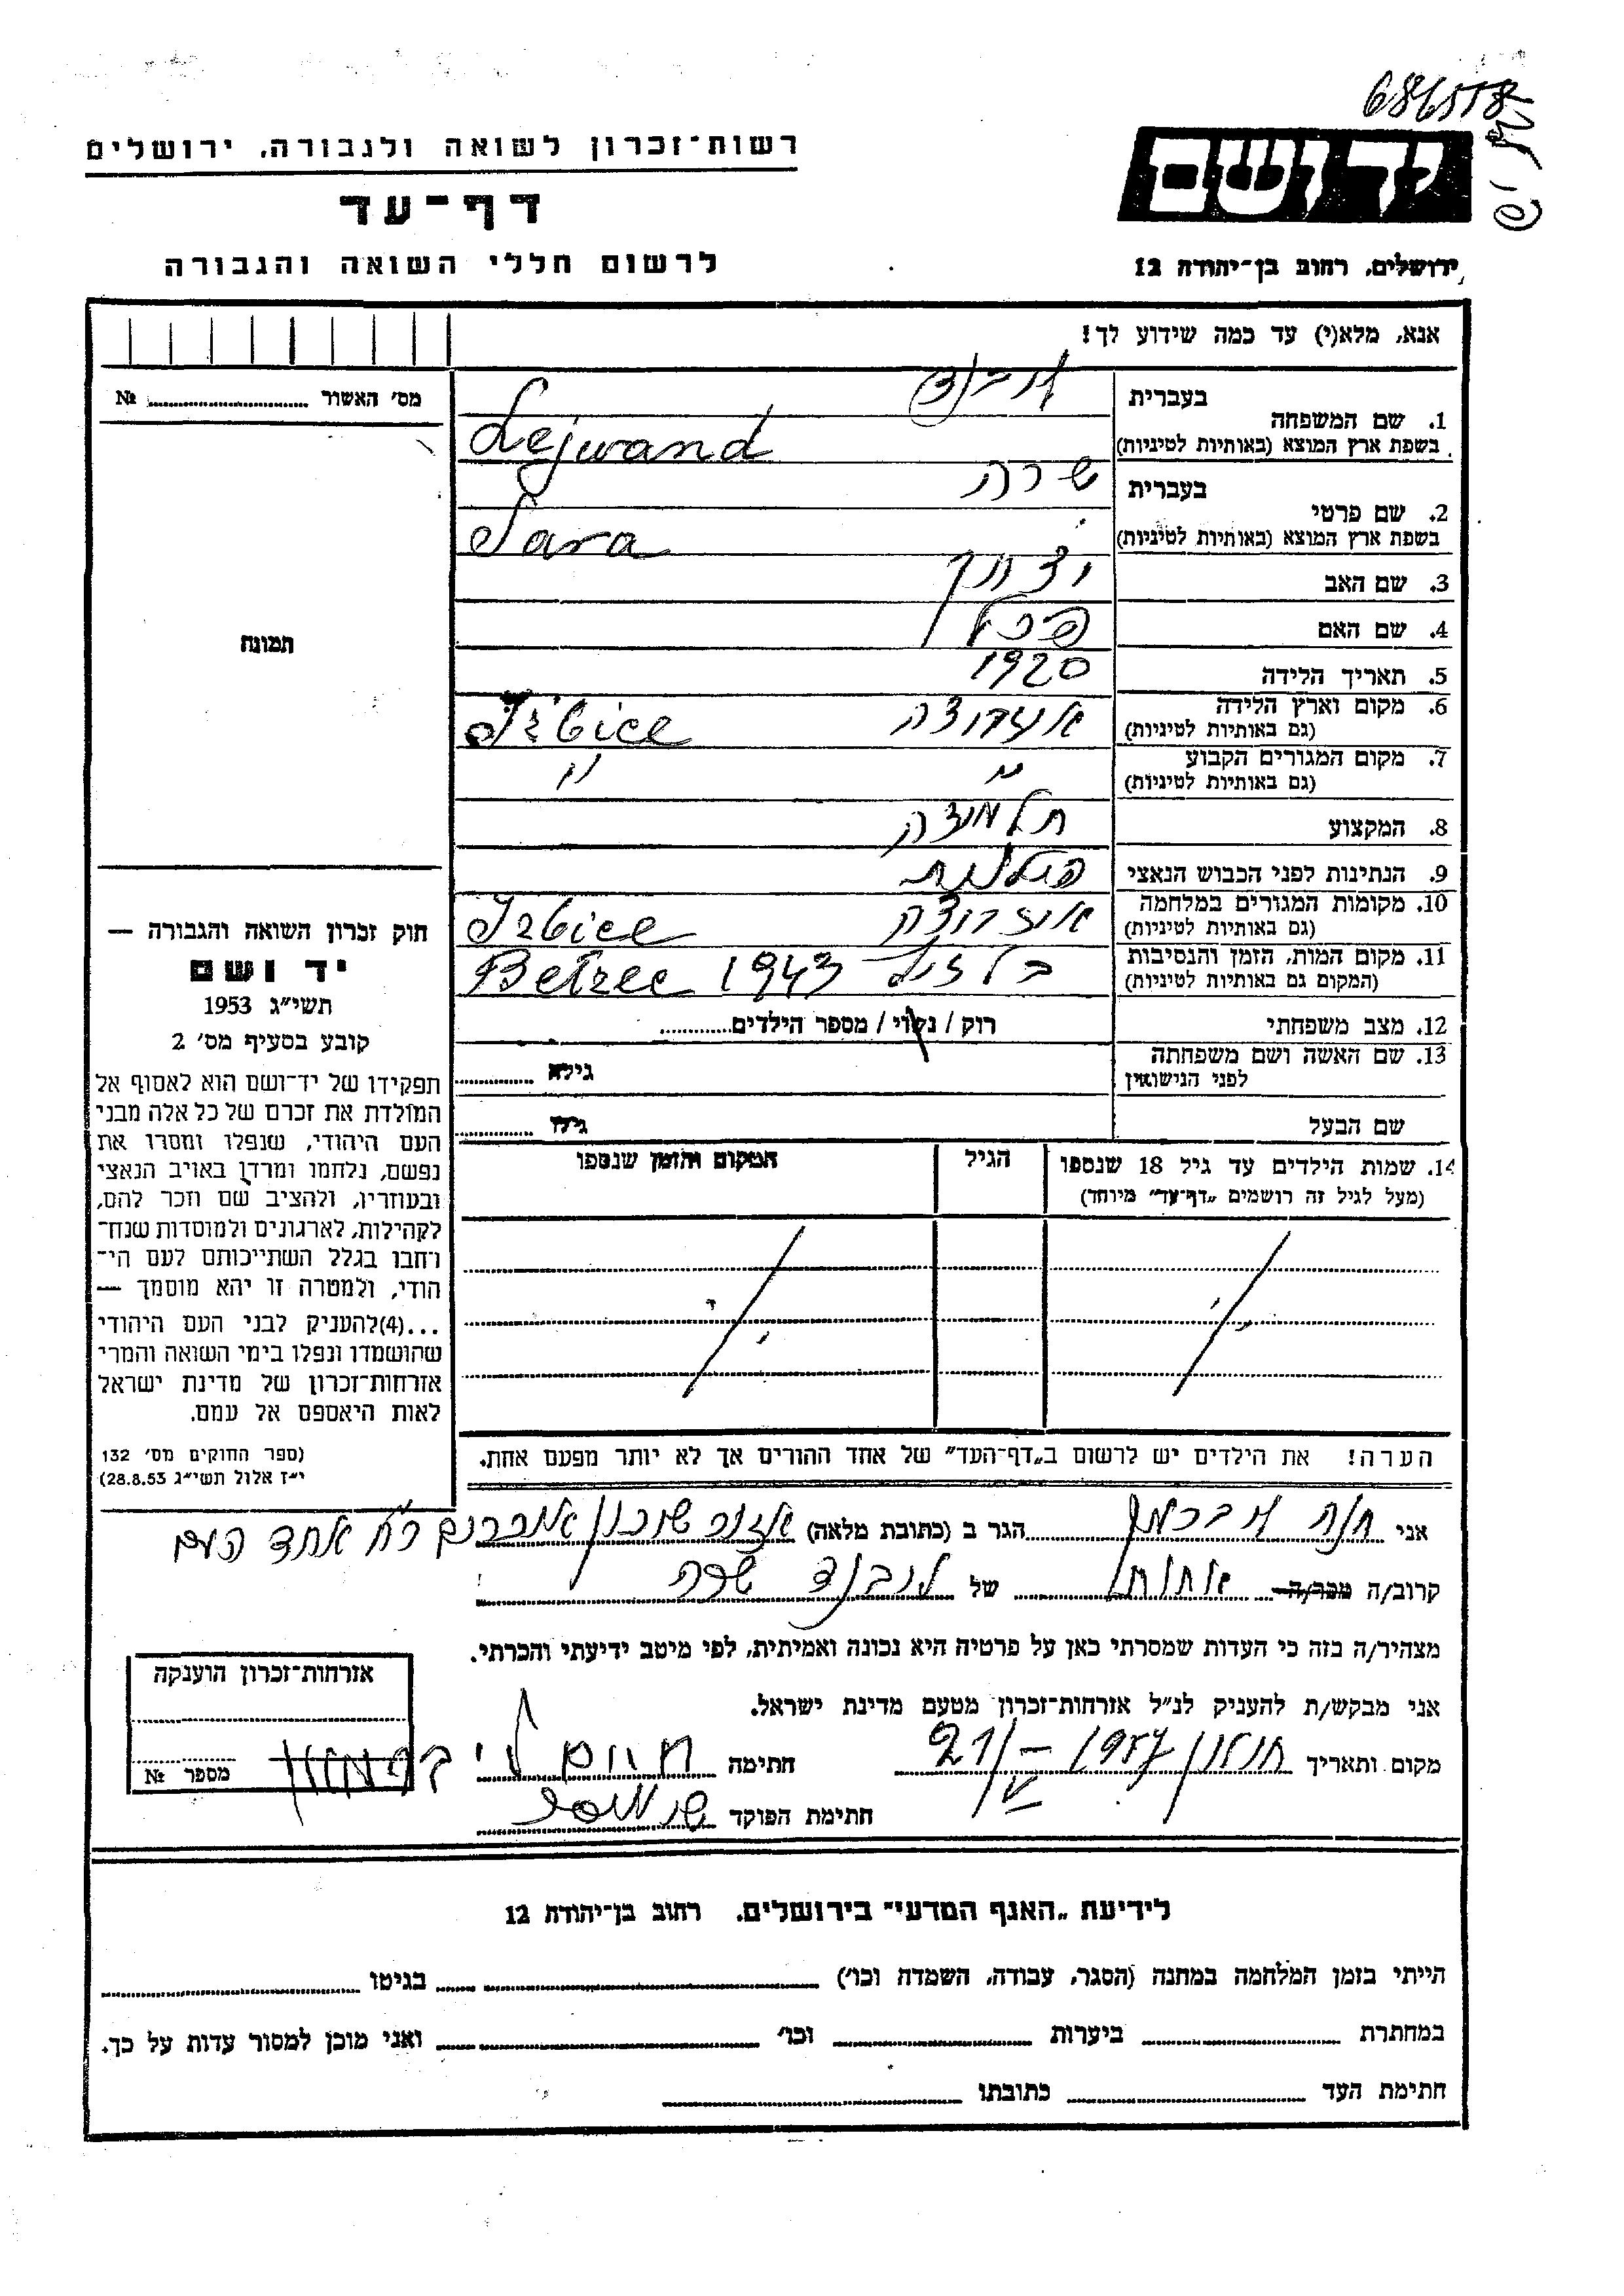 רשות־זכרון לשואה ולגבורה, ירושלים
דף־עד
לרשום חללי השואה והגבורה
686578
יד ושם
ירושלים, רחוב בן־יהודה 12
אנא, מלא(י) עד כמה שידוע לך!
מס׳ האשור №
תמונה
1. שם המשפחה
בעברית
בשפת ארץ המוצא (באותיות לטיניות)
Lejwand
2. שם פרטי
בעברית שרה
בשפת ארץ המוצא (באותיות לטיניות)
Sara
3. שם האב
4. שם האם
5. תאריך הלידה 1920
6. מקום וארץ הלידה
(גם באותיות לטיניות) Izbice
7. מקום המגורים הקבוע
(גם באותיות לטיניות) "
8. המקצוע
9. הנתינות לפני הכבוש הנאצי פולנית
10. מקומות המגורים במלחמה
(גם באותיות לטיניות) Izbice
11. מקום המות, הזמן והנסיבות
(המקום גם באותיות לטיניות) Betzec 1943
12. מצב משפחתי רוק / נשוי / מספר הילדים
13. שם האשה ושם משפחתה
לפני הנישואין גילה
שם הבעל גילו
14. שמות הילדים עד גיל 18 שנספו הגיל המקום והזמן שנספו
(מעל לגיל זה רושמים „דף־עד” מיוחד)
חוק זכרון השואה והגבורה —
יד ושם
תשי״ג 1953
קובע בסעיף מס׳ 2
תפקידו של יד־ושם הוא לאסוף אל
המולדת את זכרם של כל אלה מבני
העם היהודי, שנפלו ומסרו את
נפשם, נלחמו ומרדו באויב הנאצי
ובעוזריו, ולהציב שם וזכר להם,
לקהילות, לארגונים ולמוסדות שנח־
רבו בגלל השתייכותם לעם הי־
הודי, ולמטרה זו יהא מוסמך —
...(4)להעניק לבני העם היהודי
שהושמדו ונפלו בימי השואה והמרי
אזרחות־זכרון של מדינת ישראל
לאות היאספם אל עמם.
(ספר החוקים מס׳ 132
י״ז אלול תשי״ג 28.8.53)
הערה! את הילדים יש לרשום ב„דף־העד” של אחד ההורים אך לא יותר מפעם אחת.
אני חנה הגר ב (כתובת מלאה)
קרוב/ה מכר/ה של שרה
מצהיר/ה בזה כי העדות שמסרתי כאן על פרטיה היא נכונה ואמיתית, לפי מיטב ידיעתי והכרתי.
אני מבקש/ת להעניק לנ״ל אזרחות־זכרון מטעם מדינת ישראל.
מקום ותאריך חולון 1957 21/V חתימה
חתימת הפוקד
אזרחות־זכרון הוענקה
מספר №
לידיעת „האגף המדעי” בירושלים, רחוב בן־יהודה 12
הייתי בזמן המלחמה במחנה (הסגר, עבודה, השמדה וכו׳) בגיטו
במחתרת ביערות וכו׳ ואני מוכן למסור עדות על כך.
חתימת העד כתובתו